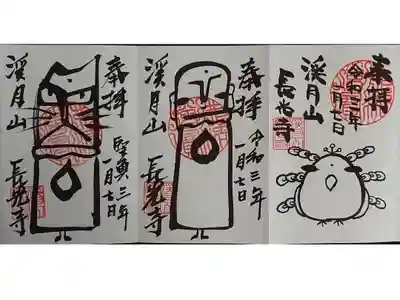 奉拝
令和三年
一月七日
溪月山
長光寺
奉拝
令和三年
一月七日
溪月山
長光寺
奉拝
三年
一月七日
溪月山
長光寺